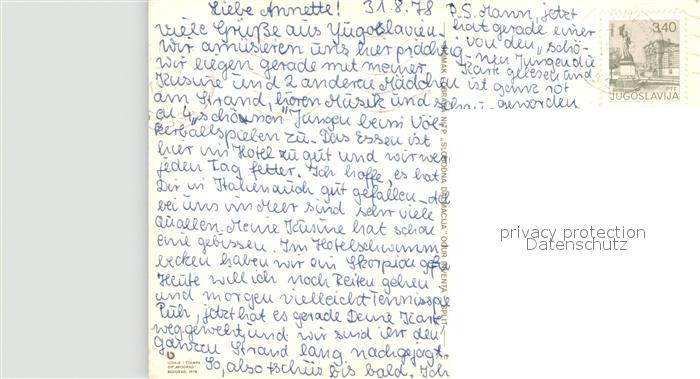 Liebe Annette! 31.8.78
viele Grüße aus Jugoslavien.
Wir amüsieren uns hier prächtig.
Wir liegen gerade mit meiner
Kusine und 2 anderen Mädchen
am Strand, hören Musik und
en 4 „schönen" Jungen beim Völ-
kerballspielen zu. Das Essen ist
hier im Hotel zu gut und wir wer
jeden Tag fetter. Ich hoffe, es hat
Dir in Italien auch gut gefallen.
bei uns im Meer sind sehr viele
Quallen. Meine Kusine hat schon
eine gebissen. Im Hotelschwimm
becken haben wir ein Skorpion gefu
Heute will ich noch Reiten gehen
und morgen vielleicht Tennisspie
Puh, jetzt hat es gerade Deine Karte
weggeweht und wir sind ihr den
ganzen Strand lang nachgejagt.
So, also tschüs bis bald. Ich
P.S. Mann, jetzt
hat gerade einer
von den „schö-
nen Jungen die
Karte gelesen und
ist ganz rot
geworden
3,40
PTT
JUGOSLAVIJA
"SLOBODNA DALMACIJA"
BEOGRAD, 1978
privacy protection
Datenschutz